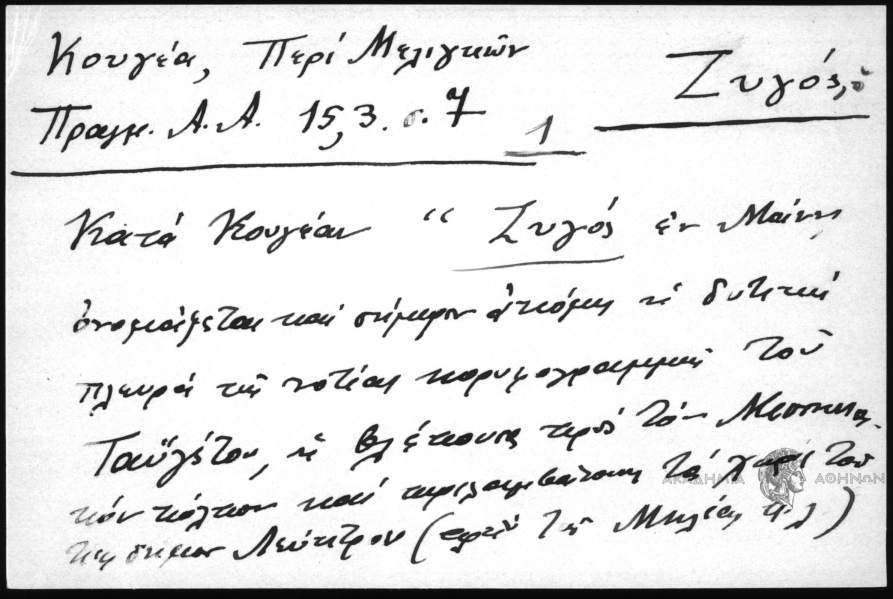 Κουγέα, Περί Μελιγκῶν
Ζυγός, ὁ
Πραγμ. Α.Α. 15,3. σ. 7
1
Κατά Κουγέαν “Ζυγός ἐν Μαίνῃ
ὀνομάζεται καί σήμερον ἀκόμη ἡ δυτική
πλευρά τῆς νοτίας κορυφογραμμῆς τοῦ
Ταϋγέτου, ἡ βλέπουσα πρός τόν Μεσσηνια-
κόν κόλπον καί περιλαμβάνουσα τά χωρία τοῦ
τέως δήμου Λεύκτρου (πλήν τῆς Μηλέας κ.λ.)
ΑΚΑΔΗΜΙΑ ΑΘΗΝΩΝ